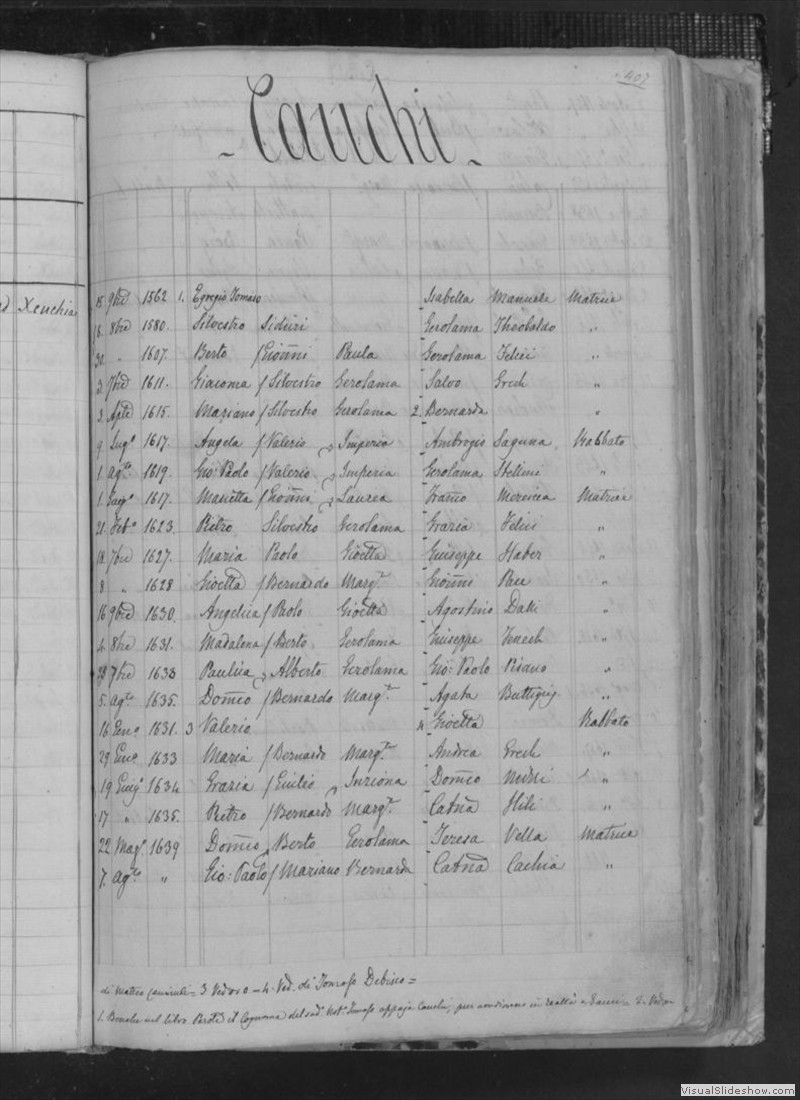 407
- Cauchi -
15 9bre 1562 1. Egregio Tomaso Isabella Manuele Matrice
16. 8bre 1580. Silvestro Sidiri Gerolama Theobaldo "
30 " 1607. Berto / Gioṁni Paula Gerolama Felici "
3 7bre 1611. Giacoma / Silvestro Gerolama Salvo Grech "
3 Aple 1615. Mariano / Silvestro Gerolama 2. Bernarda "
9 Lugo 1617. Angela / Valerio Imperia Ambrogio Saguna Rabbato
1. agto 1619. Gio: Paolo / Valerio Imperia Gerolama Stellini "
1. 1617. Marietta / Gioṁni Laurea Matrice
21 Febo 1623 Pietro Silvestro Gerolama Grazia Felici "
18 7bre 1627. Maria Paolo Gioetta Giuseppe Haber "
8 " 1628 Gioetta / Bernardo Margta Gioṁni Pace "
16 9bre 1630. Angelica / Paolo Gioetta Agostino Dalli "
4. 8bre 1631. Madalena / Berto Gerolama Giuseppe Fenech "
28 7bre 1633 Paulica Alberto Gerolama Gio: Paolo Pisano "
5. agto 1635. Doṁco / Bernardo Margta Agata Buttigieg "
16 Geno 1631. 3 Valerio 4 Gioetta Rabbato
29 Geno 1633 Maria / Bernardo Margta Andrea Grech "
19 Giugo 1634 Grazia / Emilio Doṁco "
17 " 1635. Pietro / Bernardo Margta Catna Hili "
22 Mago 1639 Doṁco Berto Gerolama Teresa Vella Matrice
7. agto " Gio: Paolo / Mariano Bernarda Catna Cachia "
di Matteo = 3 Vedovo - 4. Ved. di Tomaso Debino =
1. nel libro il Cognome del Tomaso Cauchi, per in realtà 2. Vedova
ed Xeuchia
VisualSlideshow.com